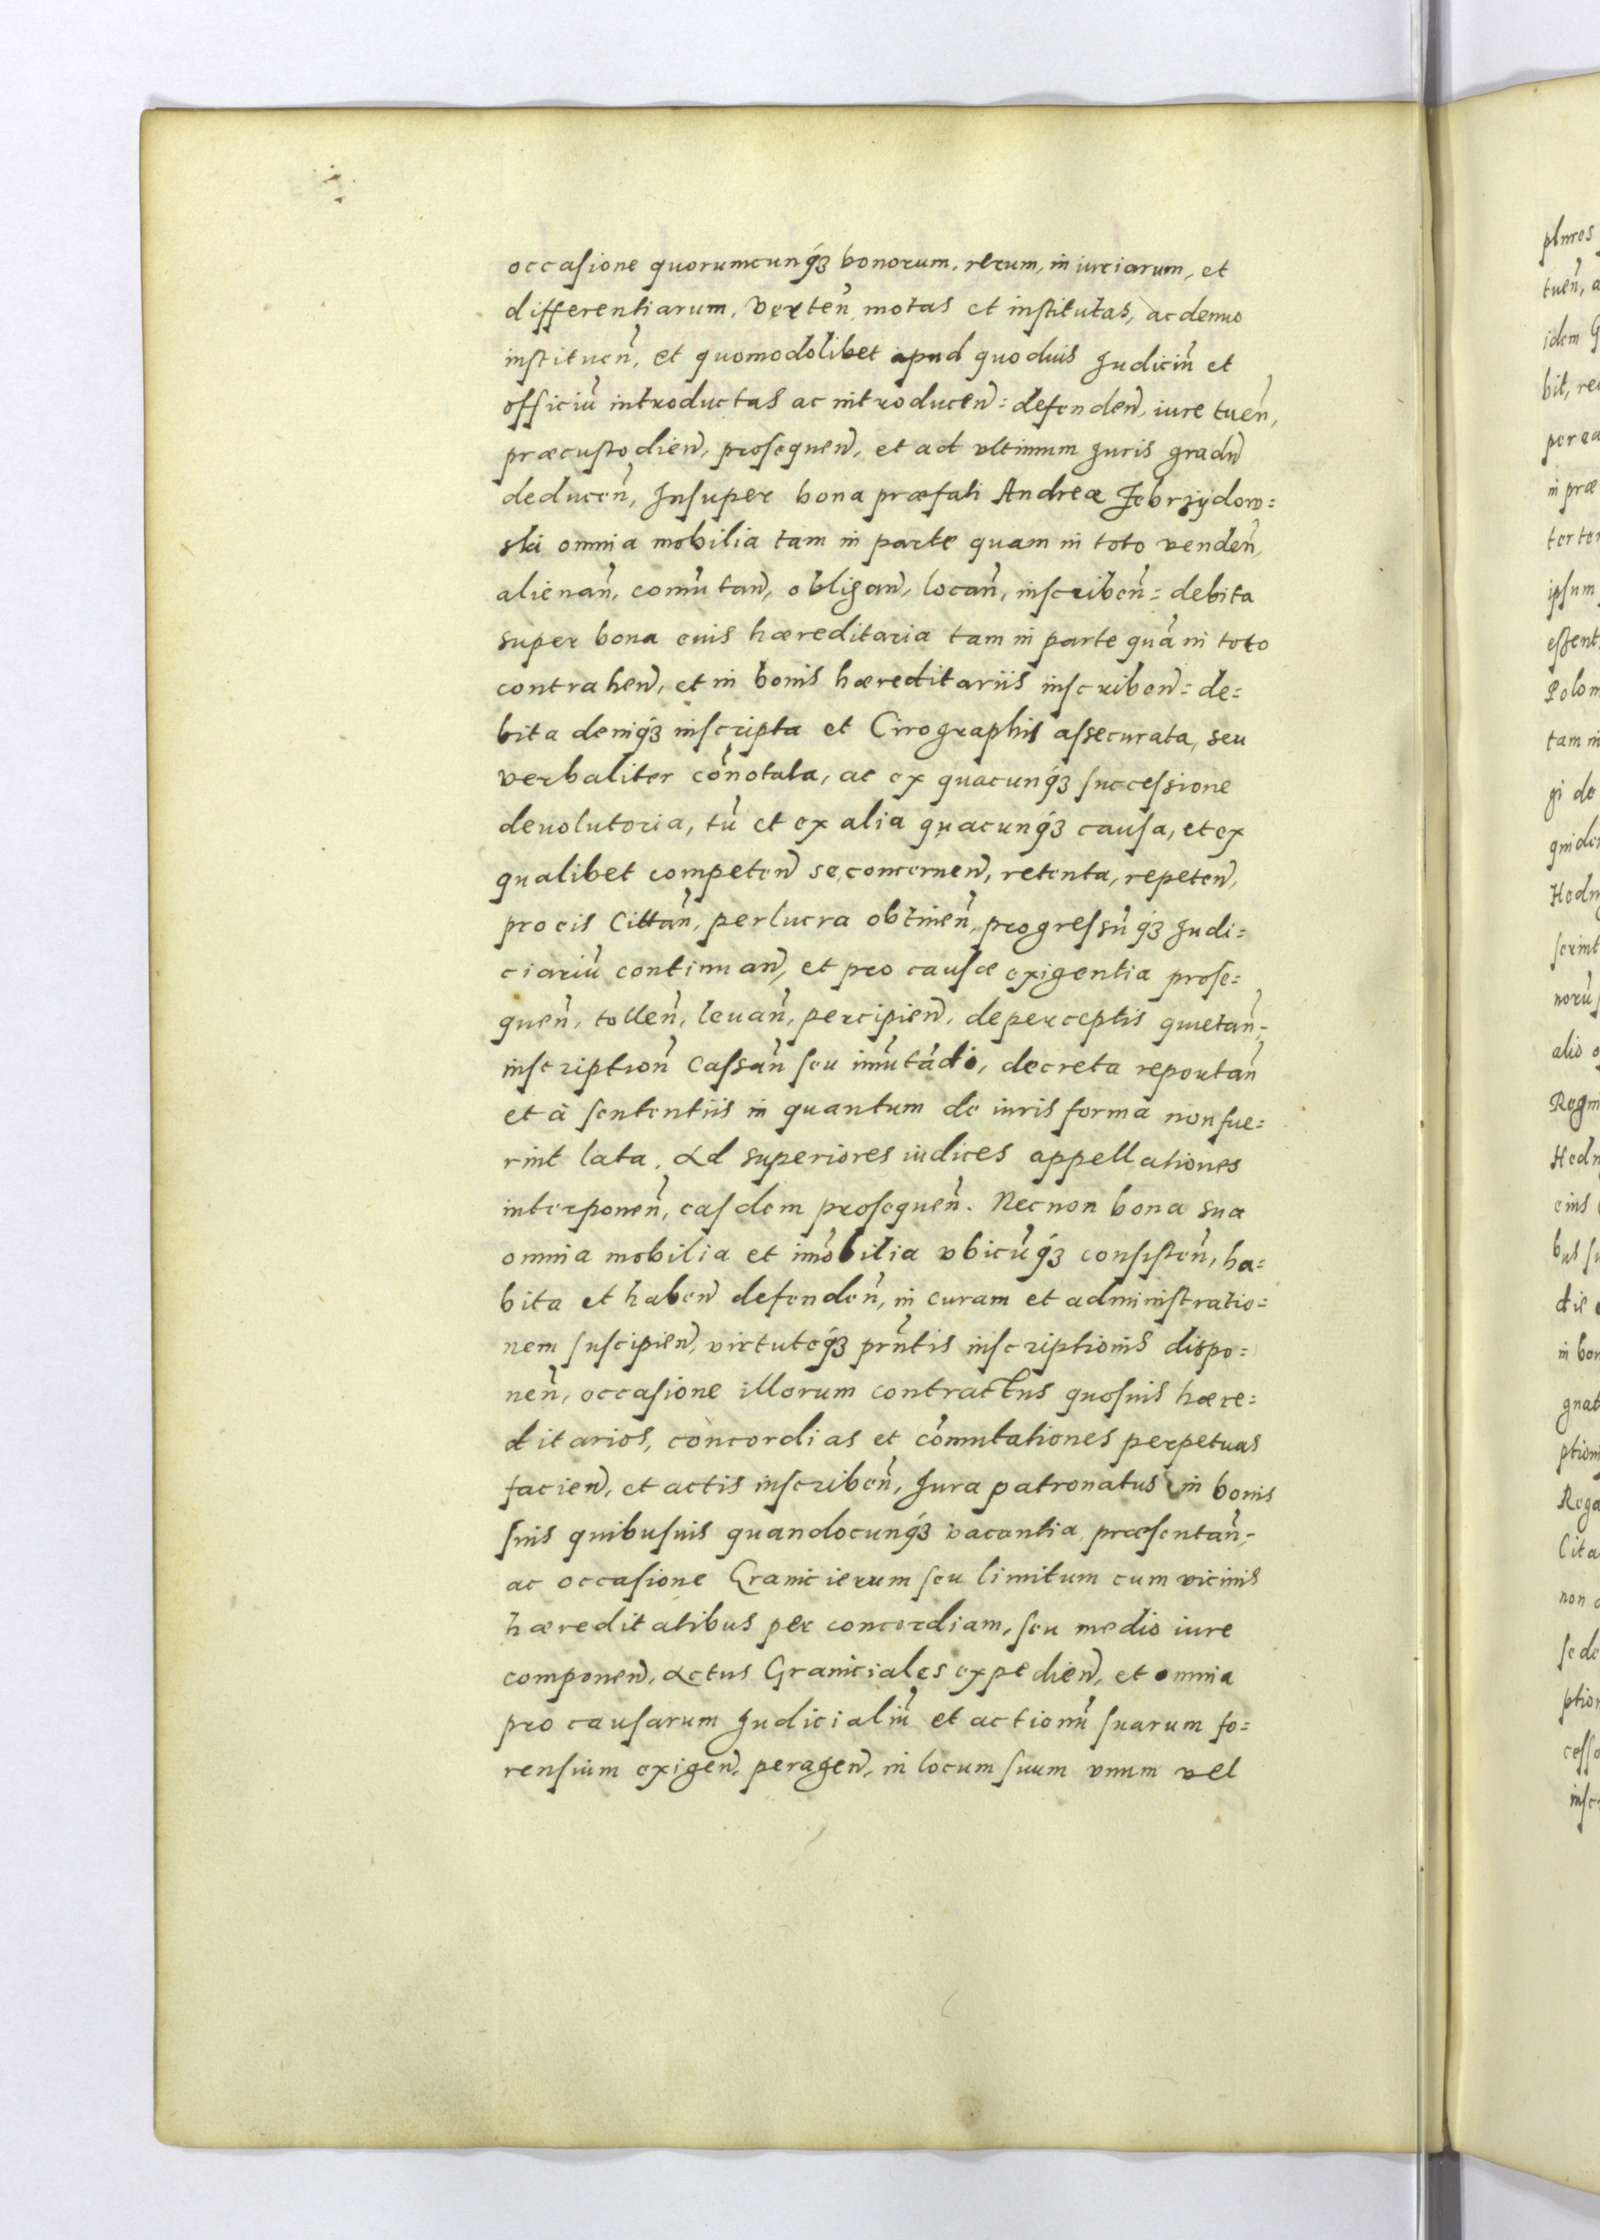 occasione quorumcunq́ꝫ bonorum, rerum, iniuriarum, et
differentiarum, verteñ motas et institutas, ac denuo
institueñ, et quomodolibet apud quoduis Judiciũ et
officiũ introductas ac introduceñ = defendeñ, iure tueñ,
præcustodieñ, prosequeñ, et ad vltimum Juris gradũ
deduceñ, Insuper bona præfati Andreæ Zebrzydow=
ski omnia mobilia tam in parte quam in toto vendeñ,
alienañ, com̃utañ, obligañ, locañ, inscribeñ = debita
super bona euis hæreditaria tam in parte quã in toto
contraheñ, et in bonis hæreditariis inscribeñ = de=
bita deniq́ꝫ inscripta et Cirographis assecurata, seu
verbaliter cõnotata, ac ex quacunq́ꝫ successione
deuolutoria, tũ et ex alia quacunq́ꝫ causa, et ex
qualibet competeñ se concerneñ, retenta, repeteñ,
pro eis Cittañ, perlucra obtineñ, progressũq́ꝫ Judi=
ciariũ continuañ, et pro causæ exigentia prose=
queñ, tolleñ, leuañ, percipieñ, de perceptis quietañ,
inscriptioñ Cassañ seu im̃utãdo, decreta reportañ
et à sententiis in quantum de iuris forma non fue=
rint lata, Ad superiores iudices appellationes
interponeñ, easdem prosequeñ. Necnon bona sua
omnia mobilia et im̃obilia vbicũq́ꝫ consisteñ, ha=
bita et habeñ defendeñ, in curam et administratio=
nem suscipieñ, virtuteq́ꝫ prñtis inscriptionis dispo=
neñ, occasione illorum contractus quosuis hære=
ditarios, concordias et com̃utationes perpetuas
facieñ, et actis inscribeñ, Jura patronatus in bonis
suis quibusuis quandocunq́ꝫ vacantia præsentañ,
ac occasione Granicierum seu limitum cum vicinis
hæreditatibus per concordiam, seu medio iure
componeñ, Actus Graniciales expedieñ, et omnia
pro causarum Judicialiũ et actionũ suarum fo=
rensium exigeñ, perageñ, in locum suum vnum vel